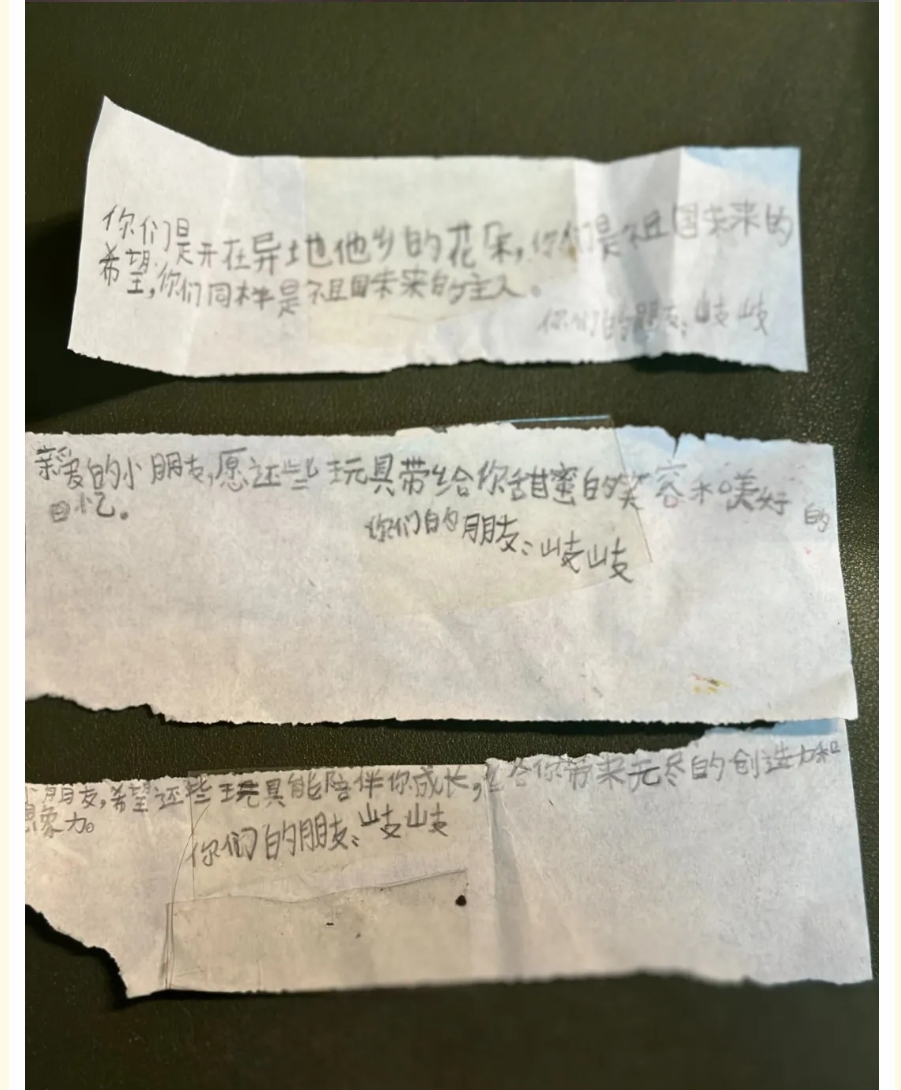 你们是开在异地他乡的花朵,你们是祖国未来的
希望,你们同样是祖国未来的主人。
你们的朋友:岐岐
亲爱的小朋友,愿这些玩具带给你甜蜜的笑容和美好的
回忆。
你们的朋友:岐岐
朋友,希望这些玩具能陪伴你成长,给你带来无尽的创造力和
象力。
你们的朋友:岐岐